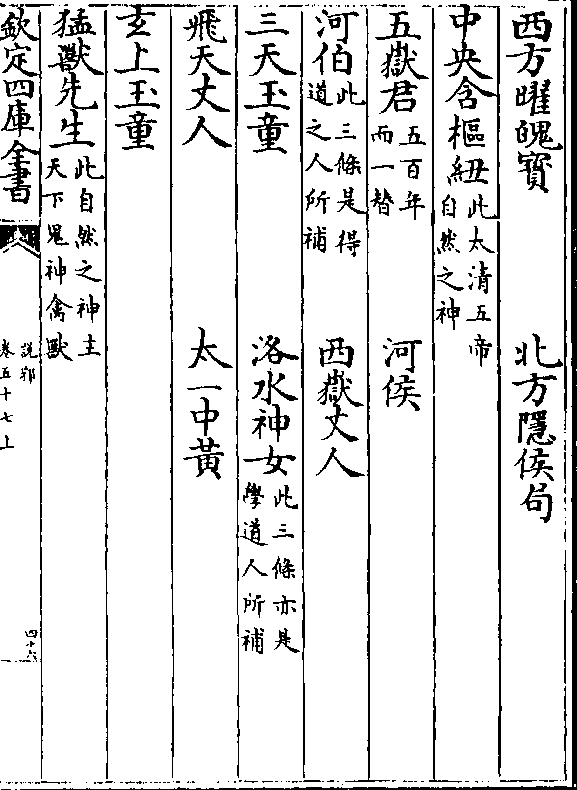 西方曜魄寳　北方隱侯局
中央含樞紐此太清五帝自然之神
五嶽君五百年而一替　河侯
河伯此三條是得道之人所補　西嶽丈人
三天玉童　洛水神女此三條亦是學道人所補
飛天丈人　太一中黃
玄上玉童
猛獸先生此自然之神主天下鬼神禽獸
欽定四庫全書　説郛卷五十七上　四十六